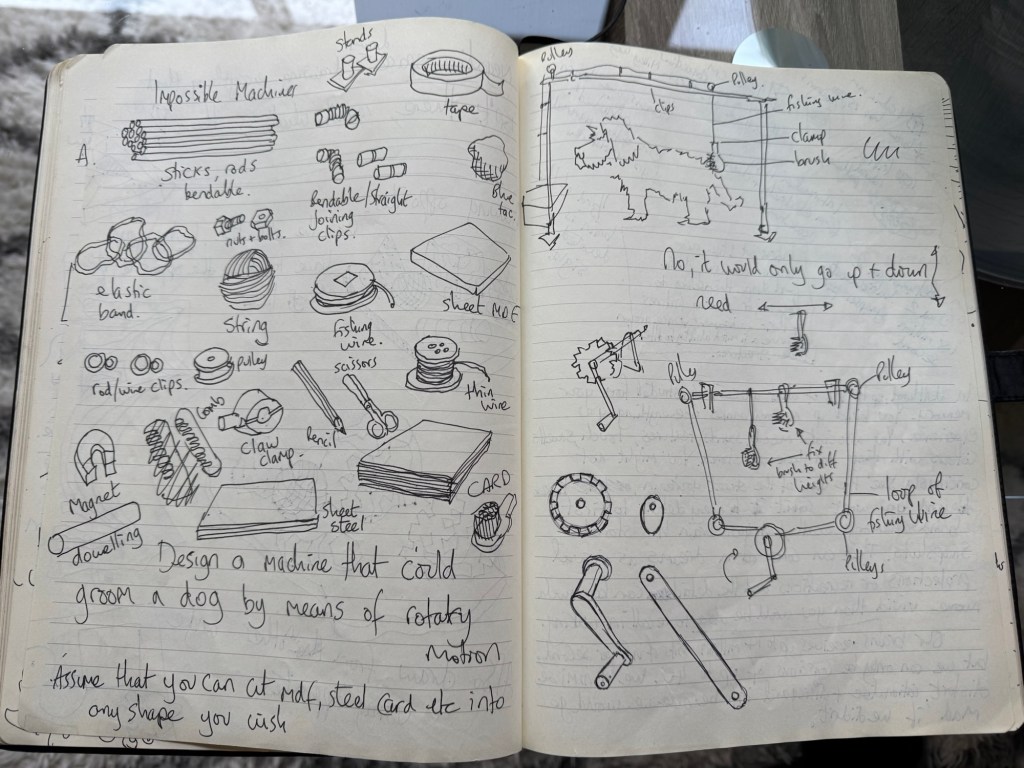 Impossible Machines
stands
tape
A.
sticks, rods
bendable.
Bendable/straight
joining
clips.
Blue
tac.
nuts + bolts.
elastic
band.
String
fishing
wire.
sheet MDF
rod/wire clips.
pulley
scissors
thin
wire
comb
claw
clamp.
Pencil
Magnet
CARD
sheet
steel
dowelling
Design a machine that could
groom a dog by means of rotary
motion
Assume that you can cut mdf, steel card etc into
any shape you wish
Pulleys
Pulley
clips
fishing wire.
clamp
brush
No, it would only go up + down
need
Pully
Pulley
fix
brush to diff
heights
loop of
fishing wire
Pulleys